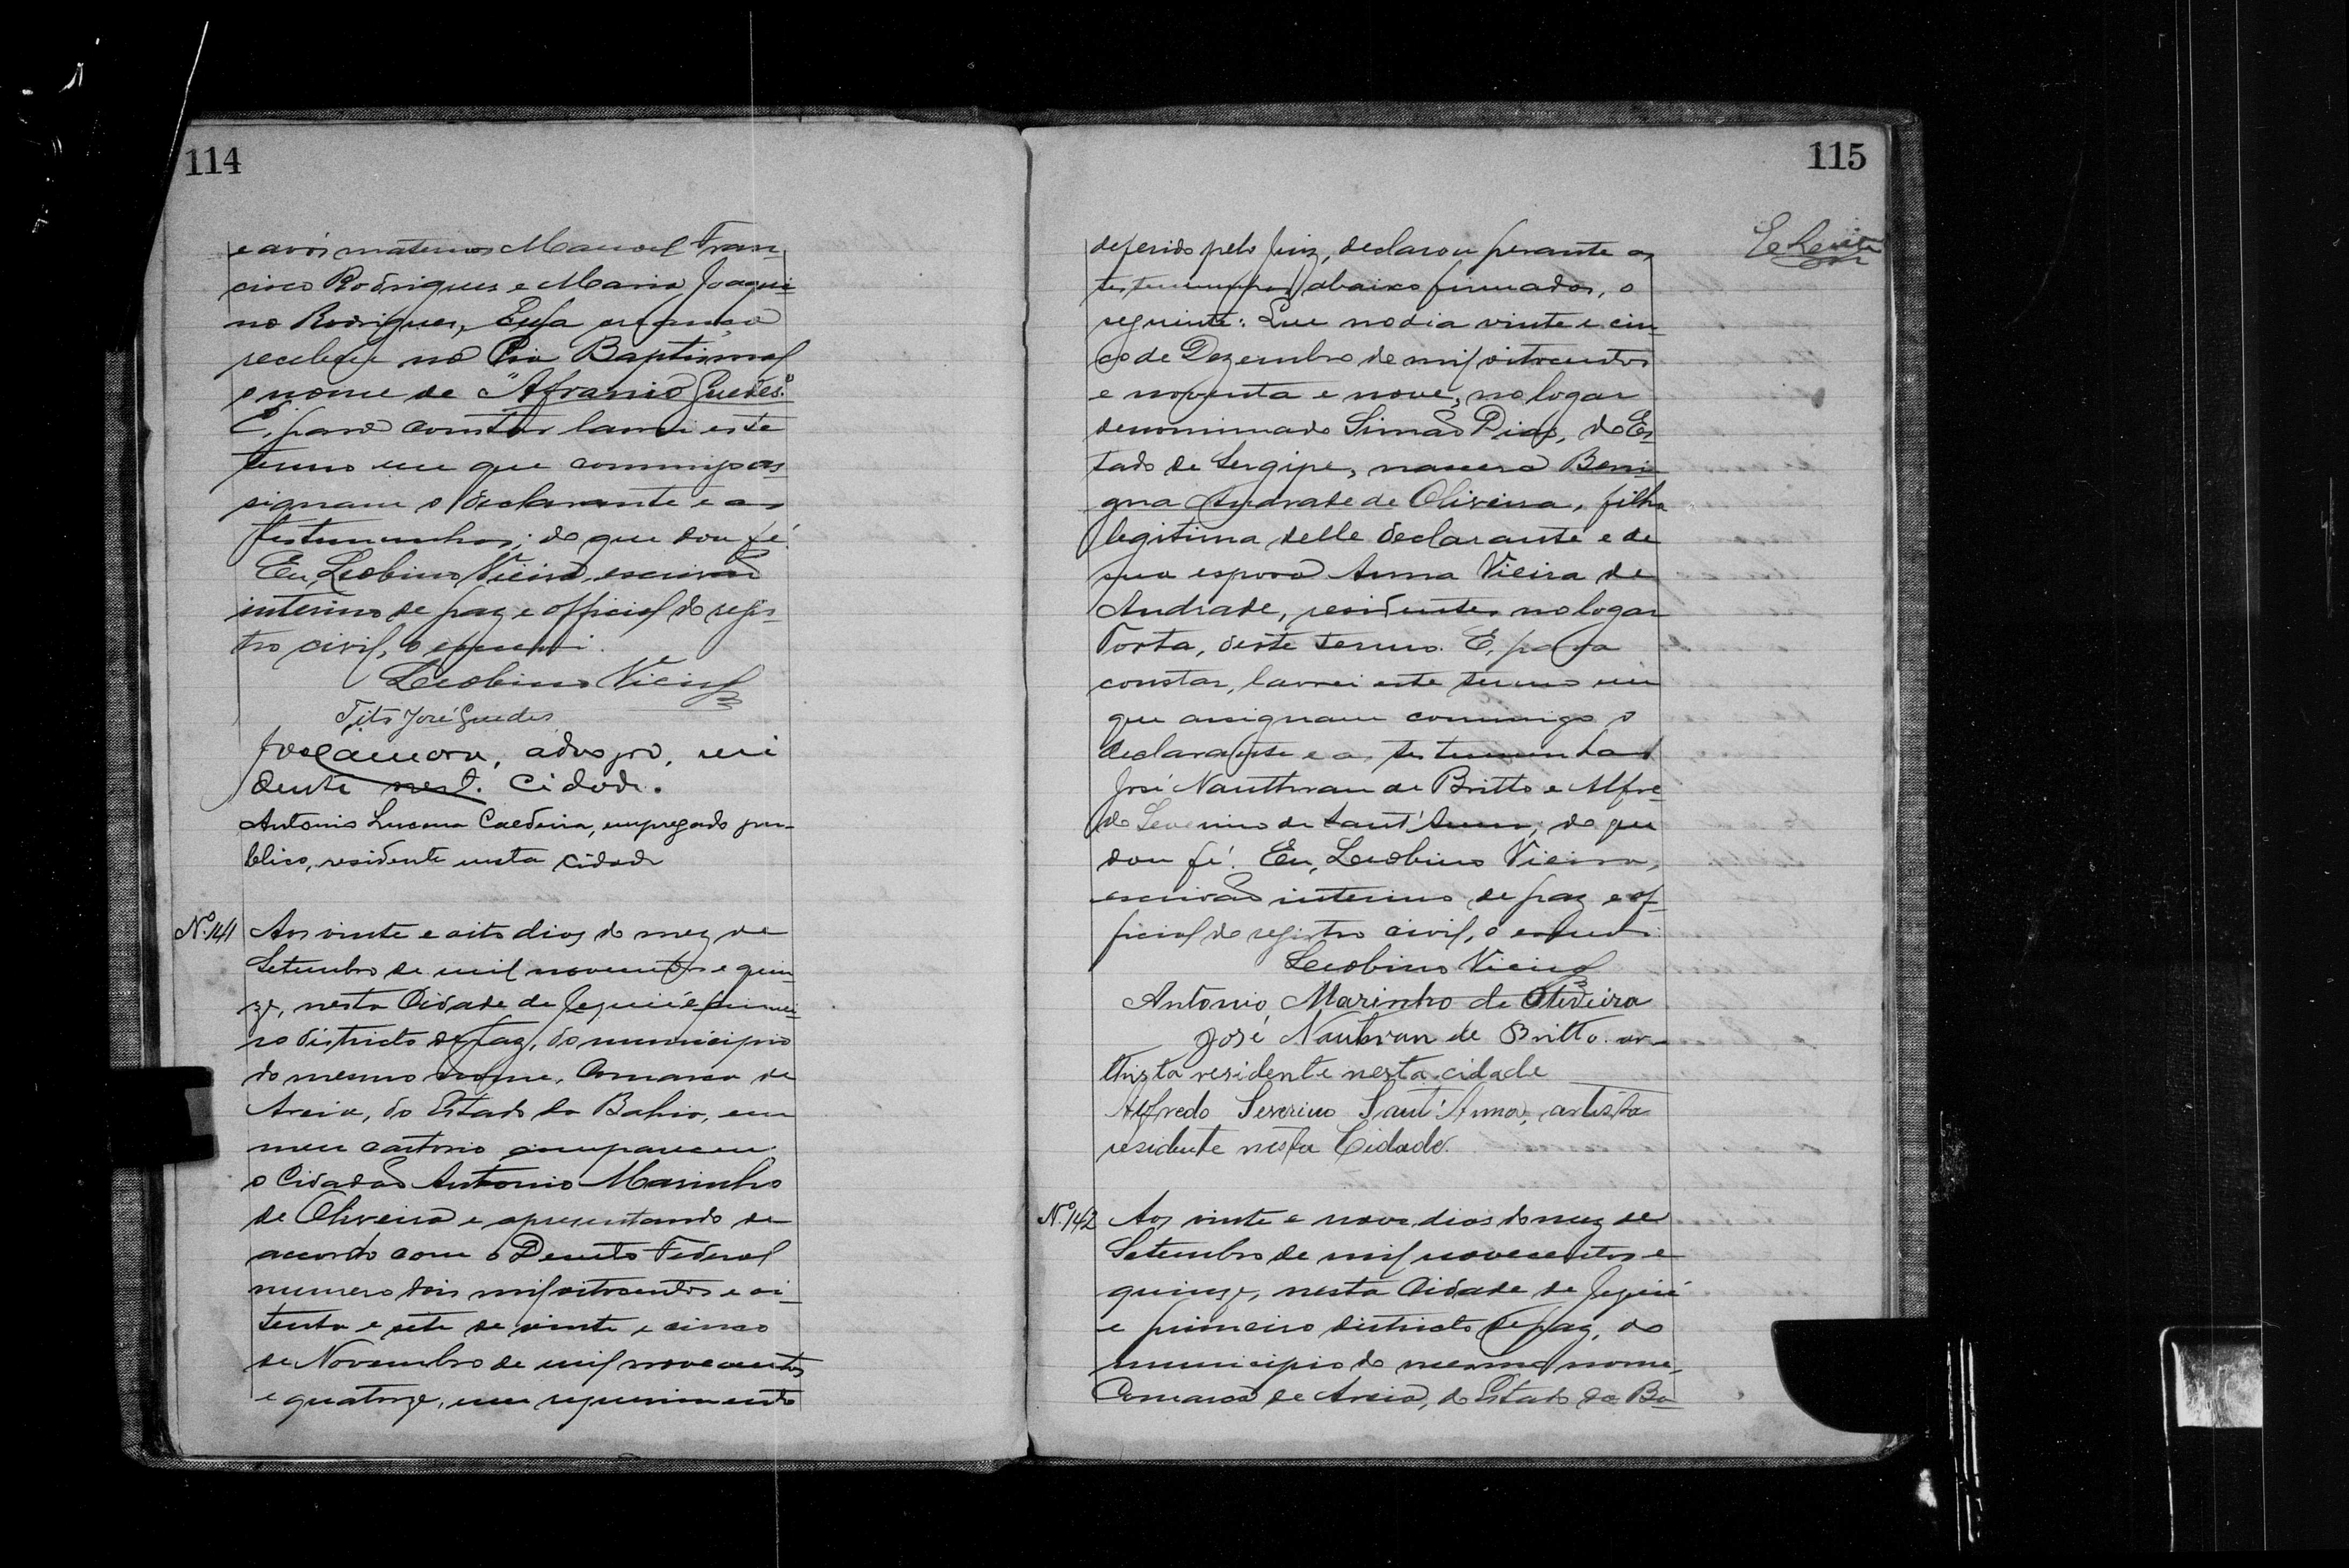 114
e avós maternos Manoel Fran-
cisco Rodrigues e Maria Joaqui-
na Rodrigues,
recebeu na Pia Baptismal
o nome de "Afranio Guedes."
E, para constar lavrei este
termo em que commigo as-
signam o declarante e as
testemunhas; do que dou fé.
Eu, Leobino Vieira, escrivão
interino de paz e official do regis-
tro civil, o escrevi.
Leobino Vieira
Tito José Guedes
residente nest. Cidade.
Antonio Lucena Caldeira, empregado pu-
blico, residente nesta cidade
Nº 141 Aos vinte e oito dias do mez de
Setembro de mil novecentos e quin-
ze, nesta Cidade de Jequié e primei-
ro districto de paz, do municipio
do mesmo nome, Comarca de
Areia, do Estado da Bahia, em
meu cartorio compareceu
o Cidadão Antonio Marinho
de Oliveira e apresentando de
accordo com o Decreto Federal
numero dois mil oitocentos e oi-
tenta e sete de vinte e cinco
de Novembro de mil novecentos
e quatorze, um requerimento
115
deferido pelo Juiz, declarou perante as
testemunhas abaixo firmadas, o
seguinte: Que no dia vinte e cin-
co de Dezembro de mil oitocentos
e noventa e nove, no logar
denominado Simão Dias, do Es-
tado de Sergipe, nascera Beni-
gna Andrade de Oliveira, filha
legitima delle declarante e de
sua esposa Anna Vieira de
Andrade, residentes no logar
Torta, deste termo. E, para
constar, lavrei este termo em
que assignam commigo o
declarante e as testemunhas
José Nauthvan de Britto e Alfre-
do Severino de Sant'Anna; do que
dou fé. Eu, Leobino Vieira,
escrivão interino de paz e of-
ficial do registro civil, o escrevi.
Leobino Vieira
Antonio Marinho de Oliveira
José Nauthvan de Britto. ar-
thista residente nesta cidade
Alfredo Severino Sant'Anna, artista
residente nesta Cidade.
Nº 142 Aos vinte e nove dias do mez de
Setembro de mil novecentos e
quinze, nesta Cidade de Jequié
e primeiro districto de paz, do
municipio do mesmo nome,
Comarca de Areia, do Estado da Ba-